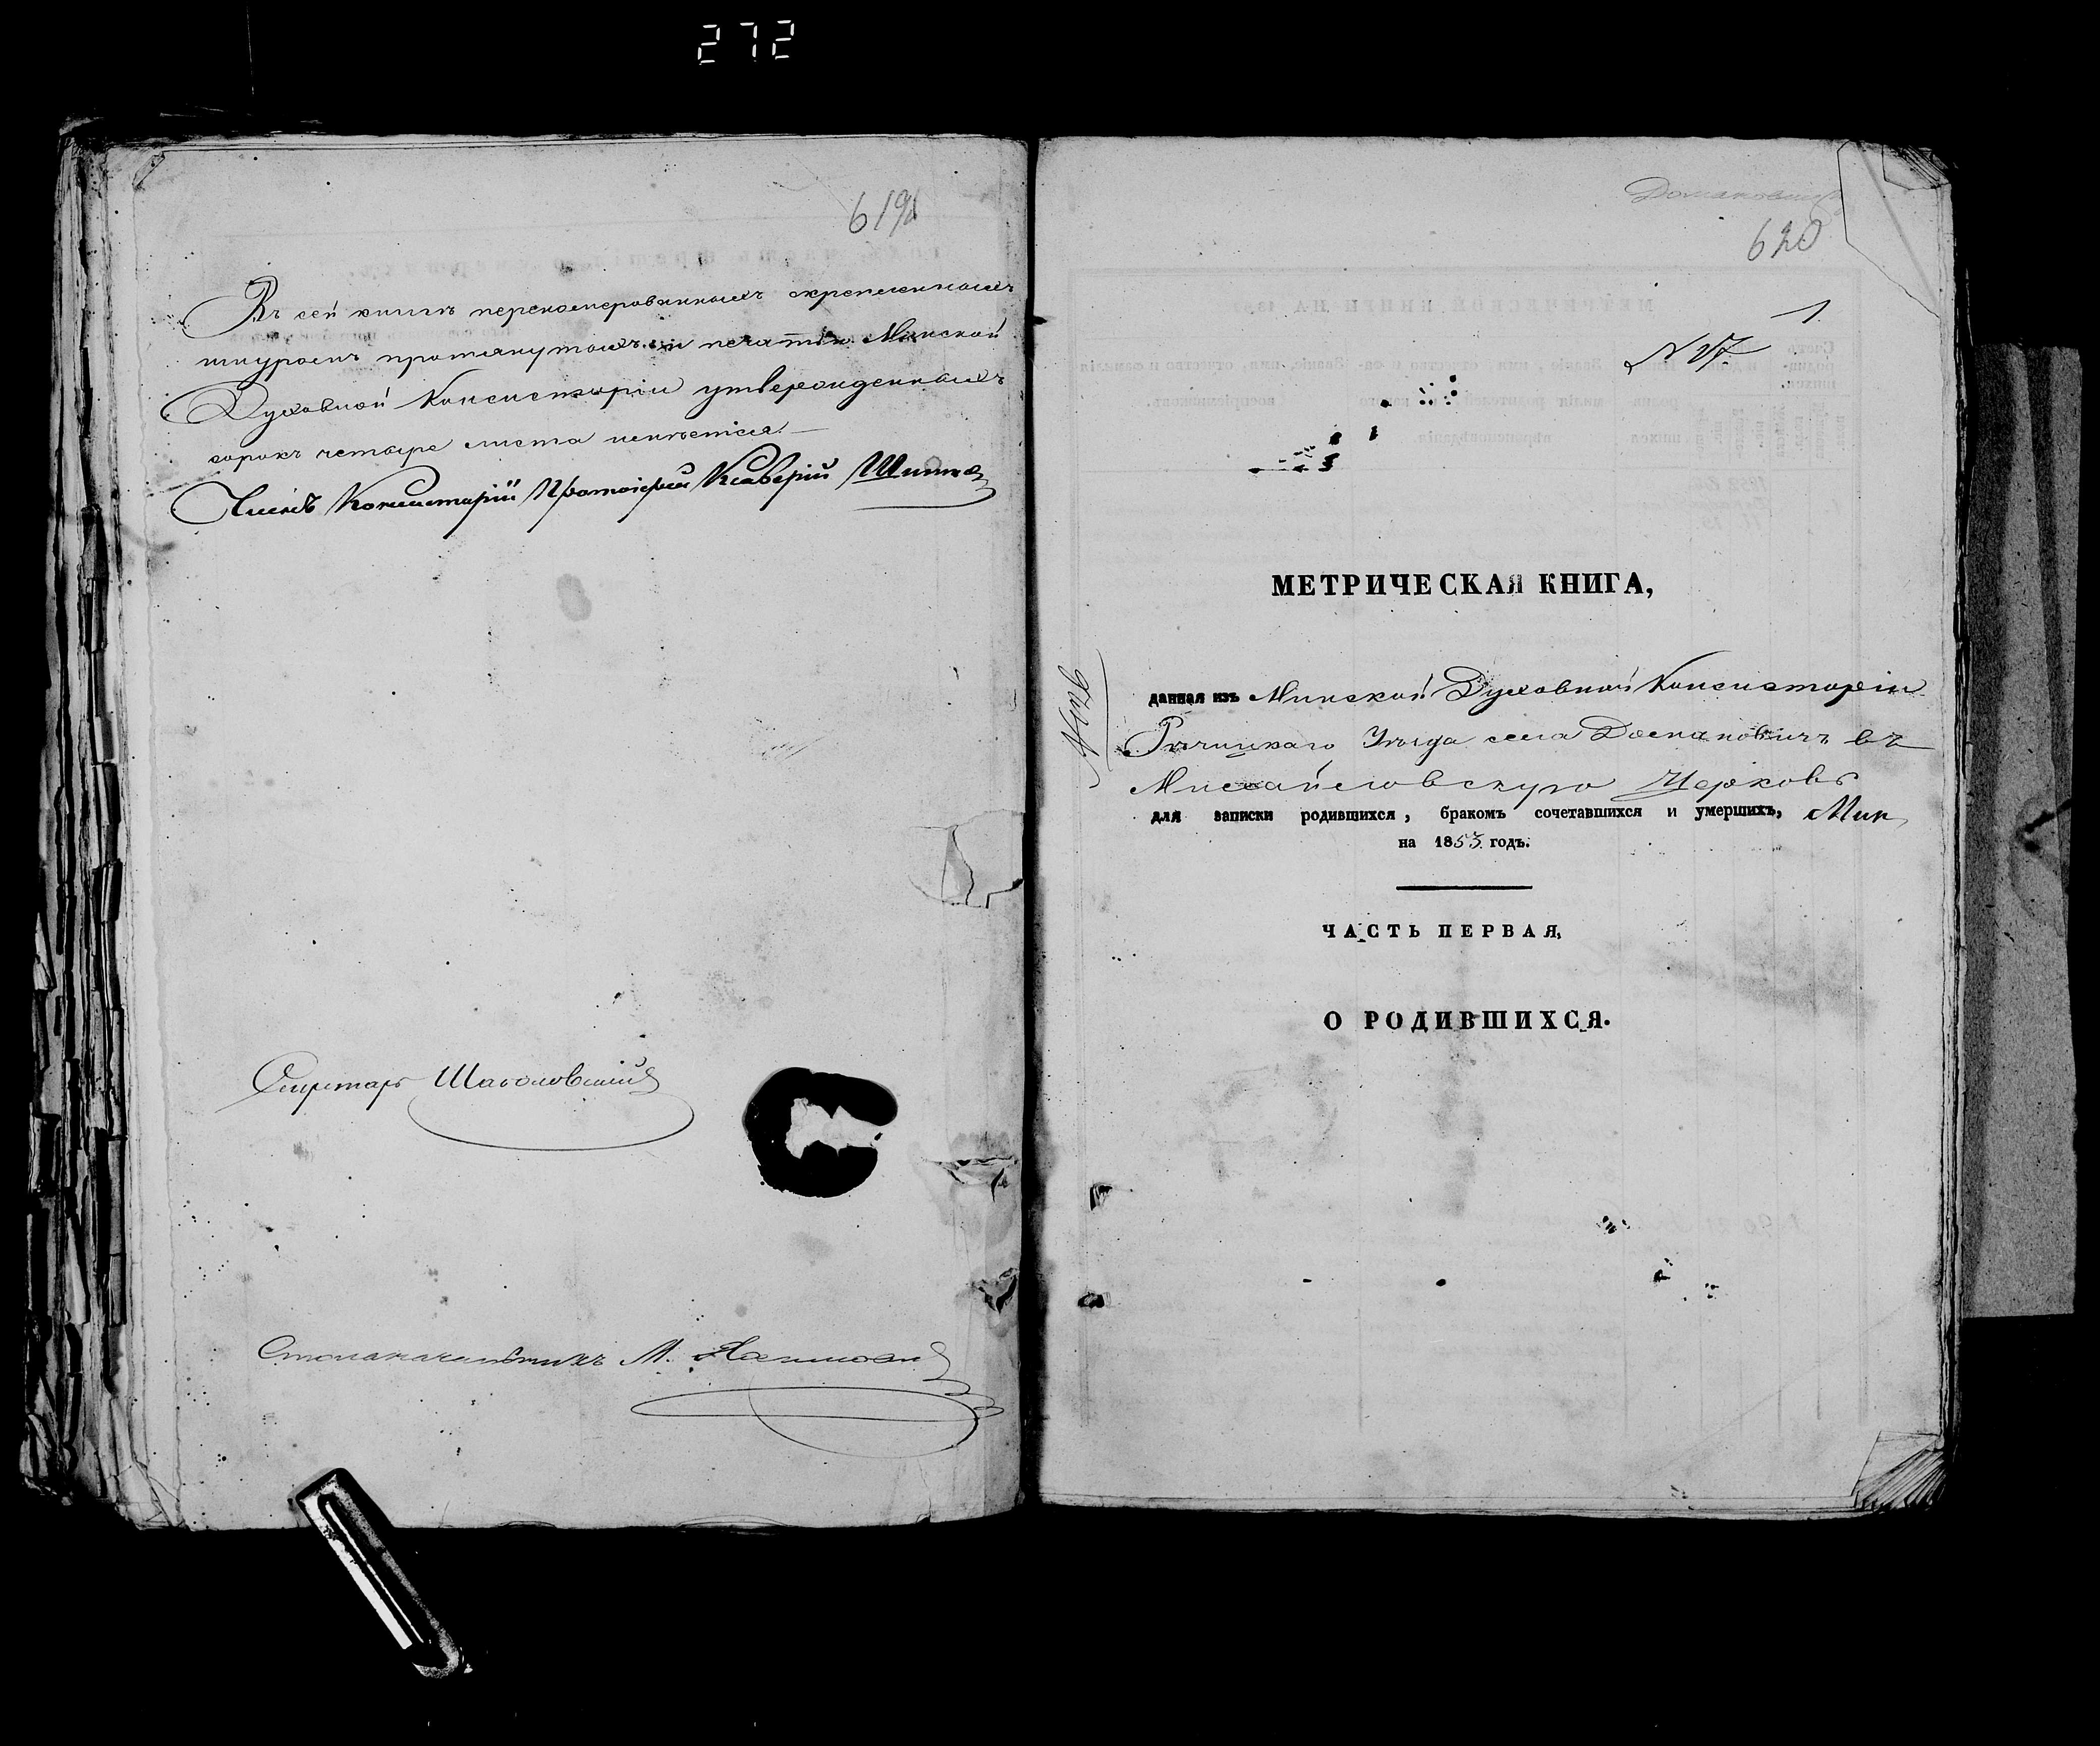 272
619
Въ сей книгѣ перенумерованныхъ скрепленныхъ
шнуромъ протянутыхъ и печатью Минской
Духовной Консисторіи утвержденныхъ
сорокъ четыре листа имѣется
Членъ Консисторіи Протоіерей
Секретарь
Столоначальникъ М.
Домановичи
620
1
N 17
МЕТРИЧЕСКАЯ КНИГА,
данная изъ Минской Духовной Консисторіи
Рѣчицкаго Уѣзда села Домановичъ въ
Михайловскую Церковь
для записки родившихся, бракомъ сочетавшихся и умершихъ,
на 1853 годъ.
ЧАСТЬ ПЕРВАЯ,
О РОДИВШИХСЯ.